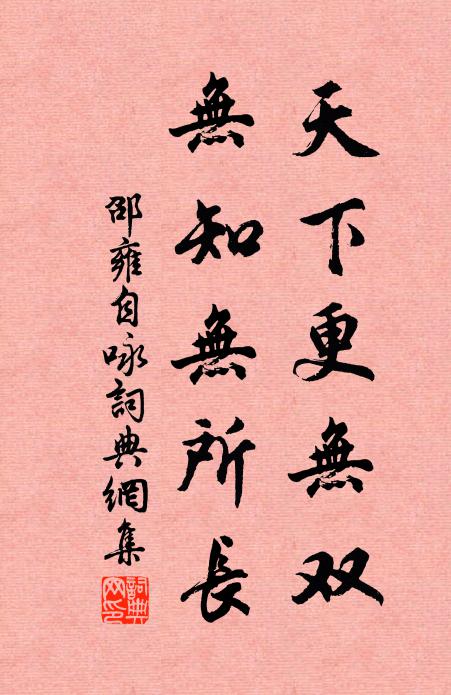 天下更無双
無知無所長
邵雍自咏詞典網集
詞典
网印